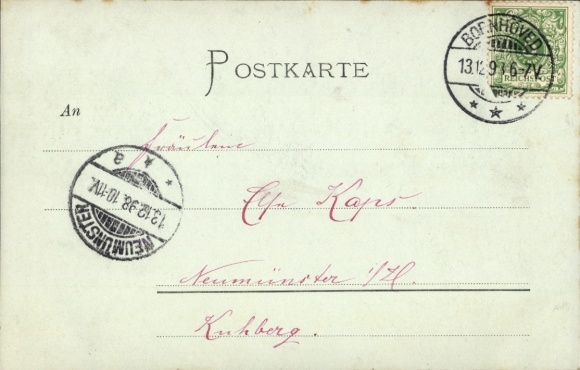 POSTKARTE
BORNHÖVED
13.12.9 6-7V.
REICHSPOST
An
Fräulein
NEUMÜNSTER
13.12.98.10-11V.
a
Else Kaps.
Neumünster i/H.
Kuhberg.